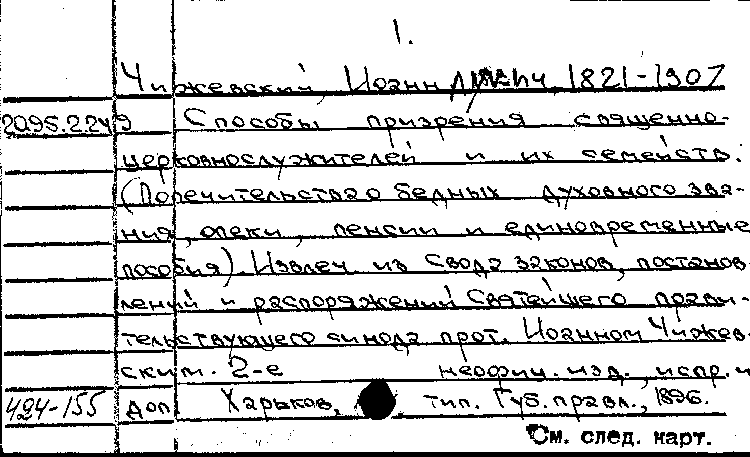 1.
Чижевский, Иоанн 1821-1907
2095.2.249 Способы призрения священно-
церковнослужителей и их семейств.
(Попечительства о бедных духовного зва-
ния, опеки, пенсии и единовременные
пособия). Извлеч из Свода законов, постанов
лений и распоряжений Святейшего прави-
тельствующего синода прот. Иоанном Чижев-
ским. 2-е неофиц. изд., испр. и
424-155 доп Харьков, тип. Губ. правл., 1896.
См. след. карт.